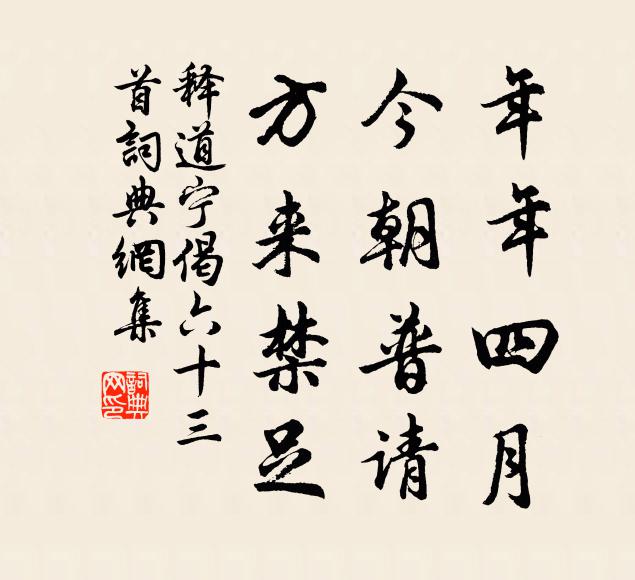 年年四月
今朝普请
方来禁足
释道宁偈六十三
首詞典網集
詞典网印